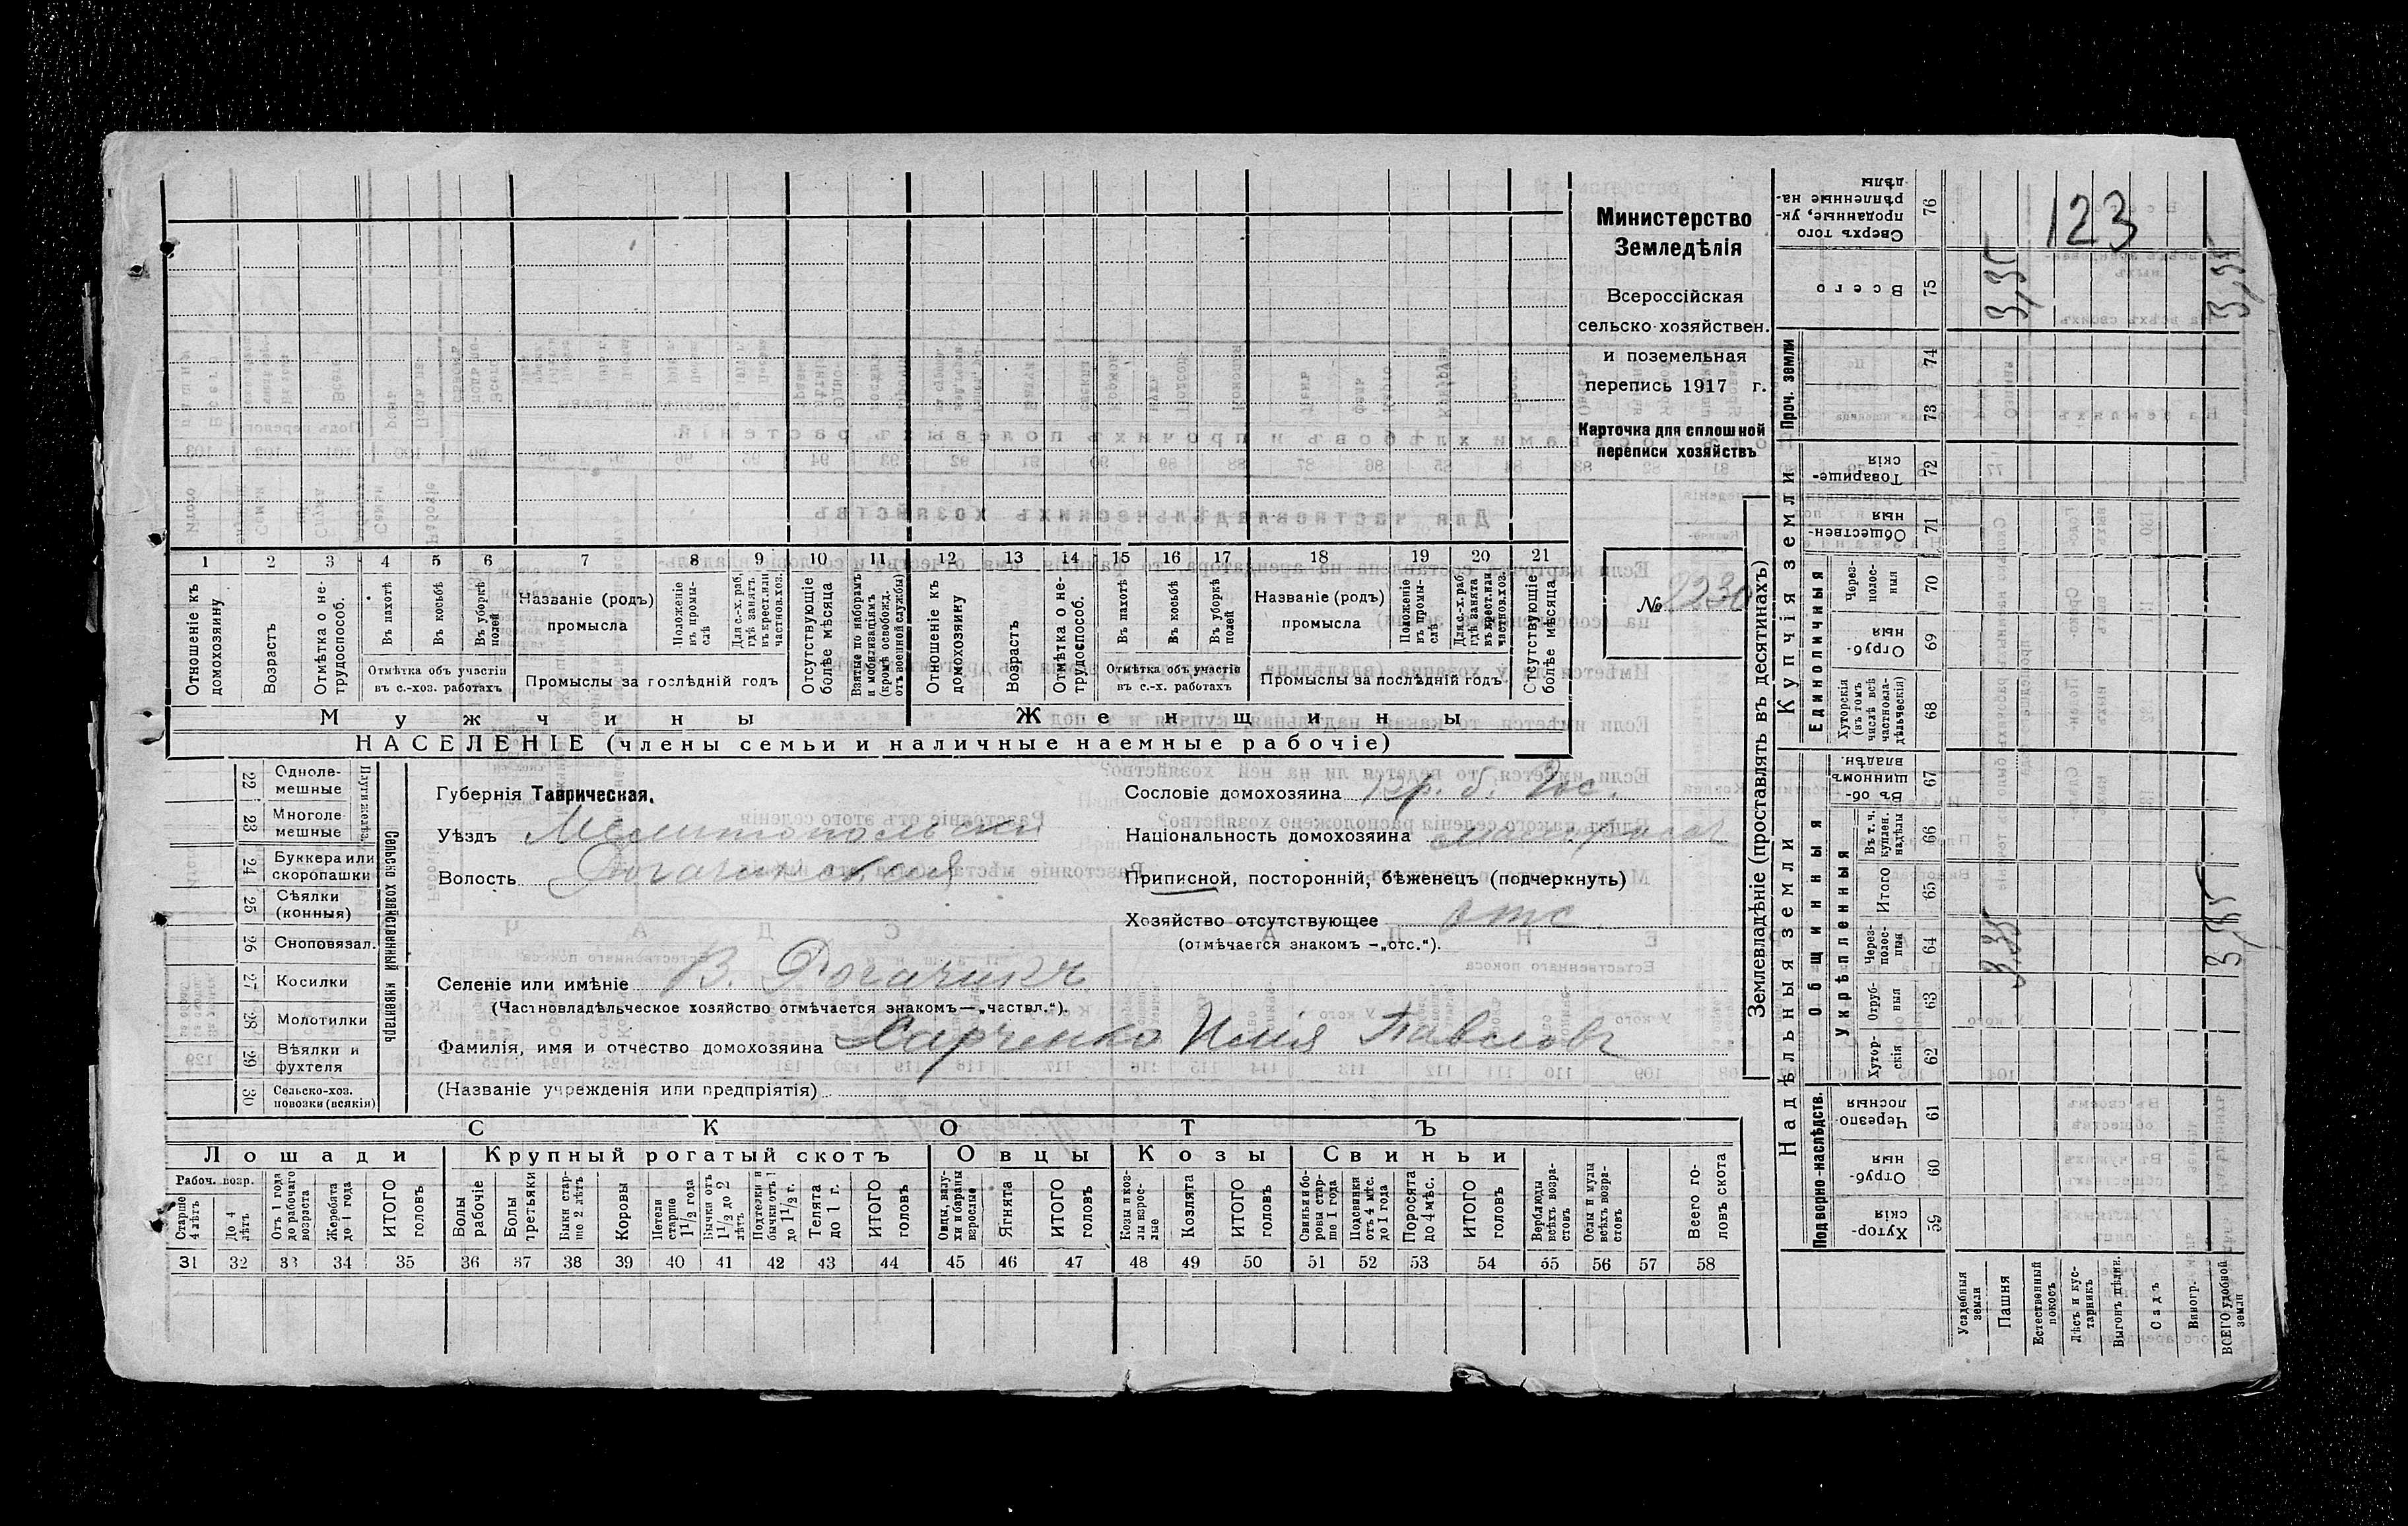 Министерство
Земледѣлія
Всероссійская
сельско-хозяйствен.
и поземельная
перепись 1917 г.
Карточка для сплошной
переписи хозяйствъ
№ 2230
123
1 2 3 4 5 6 7 8 9 10 11 12 13 14 15 16 17 18 19 20 21
Отношеніе къ домохозяину
Возрастъ
Отмѣтка о нетрудоспособ.
Въ пахотѣ
Въ косьбѣ
Въ уборкѣ полей
Отмѣтка объ участіи въ с.-хоз. работахъ
Названіе (родъ) промысла
Положеніе въ промыслѣ
Для с.-х. раб. гдѣ занятъ въ крест. или частнов. хоз.
Промыслы за послѣдній годъ
Отсутствующіе болѣе мѣсяца
Взятые по наборамъ и мобилизаціямъ (кромѣ освобожд. отъ военной службы)
Отношеніе къ домохозяину
Возрастъ
Отмѣтка о нетрудоспособ.
Въ пахотѣ
Въ косьбѣ
Въ уборкѣ полей
Отмѣтка объ участіе въ с.-х. работахъ
Названіе (родъ) промысла
Положеніе въ промыслѣ
Для с.-х. раб. гдѣ занята въ крест. или частнов. хоз.
Промыслы за послѣдній годъ
Отсутствующіе болѣе мѣсяца
Мужчины
Женщины
НАСЕЛЕНІЕ (члены семьи и наличные наемные рабочіе)
Сельско хозяйственный инвентарь
22 Однолемешные
23 Многолемешные
24 Буккера или скоропашки
25 Сѣялки (конныя)
26 Сноповязал.
27 Косилки
28 Молотилки
29 Вѣялки и фухтеля
30 Сельско-хоз. повозки (всякія)
Губернія Таврическая.
Уѣздъ Мелитопольскій
Волость Рогачикская
Селеніе или имѣніе В. Рогачикъ
(Частновладѣльческое хозяйство отмѣчается знакомъ—„частвл.“).
Фамилія, имя и отчество домохозяина Харченко Илія Павловъ
(Названіе учрежденія или предпріятія)
Сословіе домохозяина кр. б. Гос.
Національность домохозяина малоросс
Приписной, посторонній, бѣженецъ (подчеркнуть)
Хозяйство отсутствующее отс.
(отмѣчается знакомъ —„отс.“).
СКОТЪ
Лошади
Крупный рогатый скотъ
Овцы
Козы
Свиньи
Рабоч. возр.
Старше 4 лѣтъ
До 4 лѣтъ
Отъ 1 года до рабочаго возраста
Жеребята до 1 года
ИТОГО головъ
Волы рабочіе
Волы третьяки
Быки старше 2 лѣтъ
Коровы
Нетели старше 1 1/2 года
Бычки отъ 1 1/2 до 2 лѣтъ
Подтелки и бычки отъ 1 до 1 1/2 г.
Телята до 1 г.
ИТОГО головъ
Овцы, валухи и бараны взрослые
Ягнята
ИТОГО головъ
Козы и козлы взрослые
Козлята
ИТОГО головъ
Свиньи и боровы старше 1 года
Подсвинки отъ 4 мѣс. до 1 года
Поросята до 4 мѣс.
ИТОГО головъ
Верблюды всѣхъ возрастовъ
Ослы и мулы всѣхъ возрастовъ
Всего головъ скота
31 32 33 34 35 36 37 38 39 40 41 42 43 44 45 46 47 48 49 50 51 52 53 54 55 56 57 58
Землевладѣніе (проставлять въ десятинахъ)
Купчія земли
Надѣльныя земли
Проч. земли
Единоличныя
Общинныя
Укрѣпленныя
Подворно-наслѣдств.
Сверхъ того проданные, укрѣпленные надѣлы 76
Всего 75 3,35 3,35
74
73
Товарищескія 72
Общественныя 71
Черезполосныя 70
Отрубныя 69
Хуторскія (въ томъ числѣ всѣ частновладѣльческія) 68
Въ общинномъ владѣн. 67
Въ т. ч. куплен. надѣлы 66
Итого 65
Черезполосныя 64 3,35 3,35
Отрубныя 63
Хуторскія 62
Черезполосныя 61
Отрубныя 60
Хуторскія 59
Усадебныя земли
Пашня
Естественный покосъ
Лѣсъ и кустарникъ
Выгонъ цѣлин.
Садъ
Виногр.
ВСЕГО удобной земли